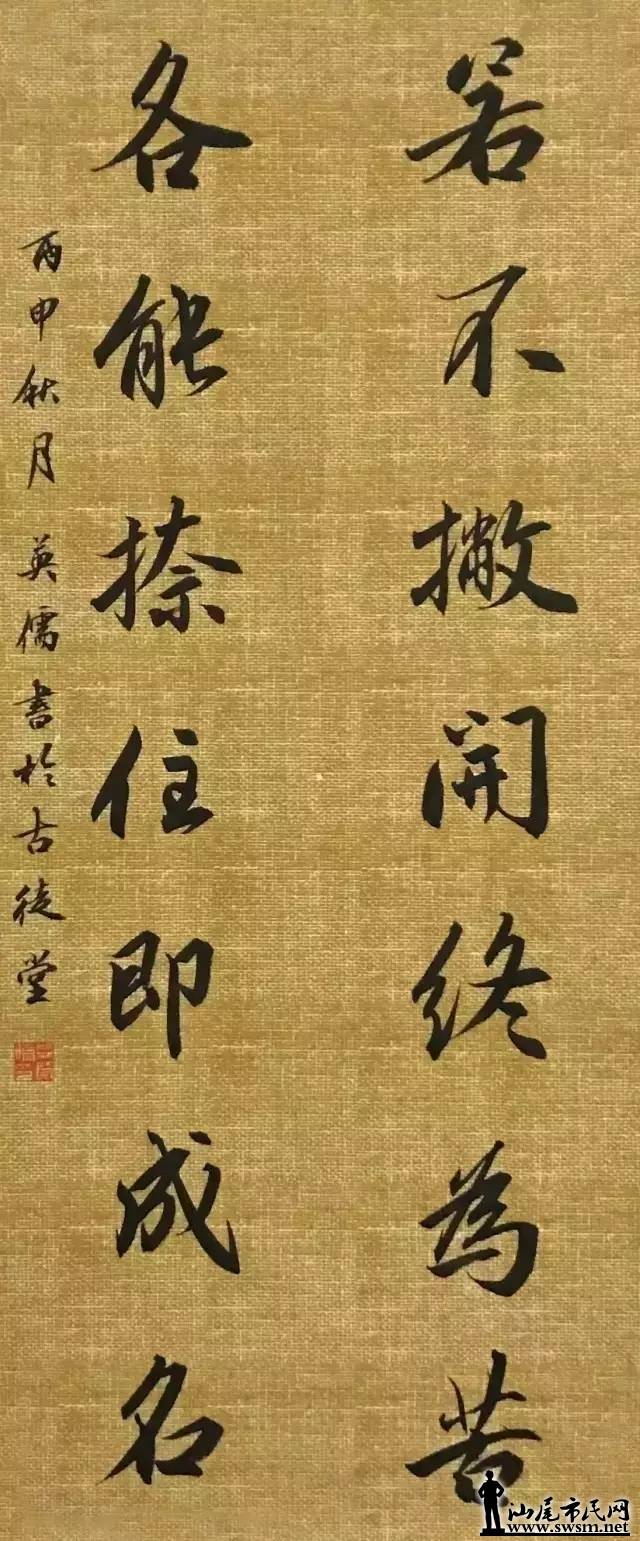 若不撇開終為苦
各能捺住即成名
丙申秋月英儒書於古徒堂
汕尾市民网
www.swsm.net